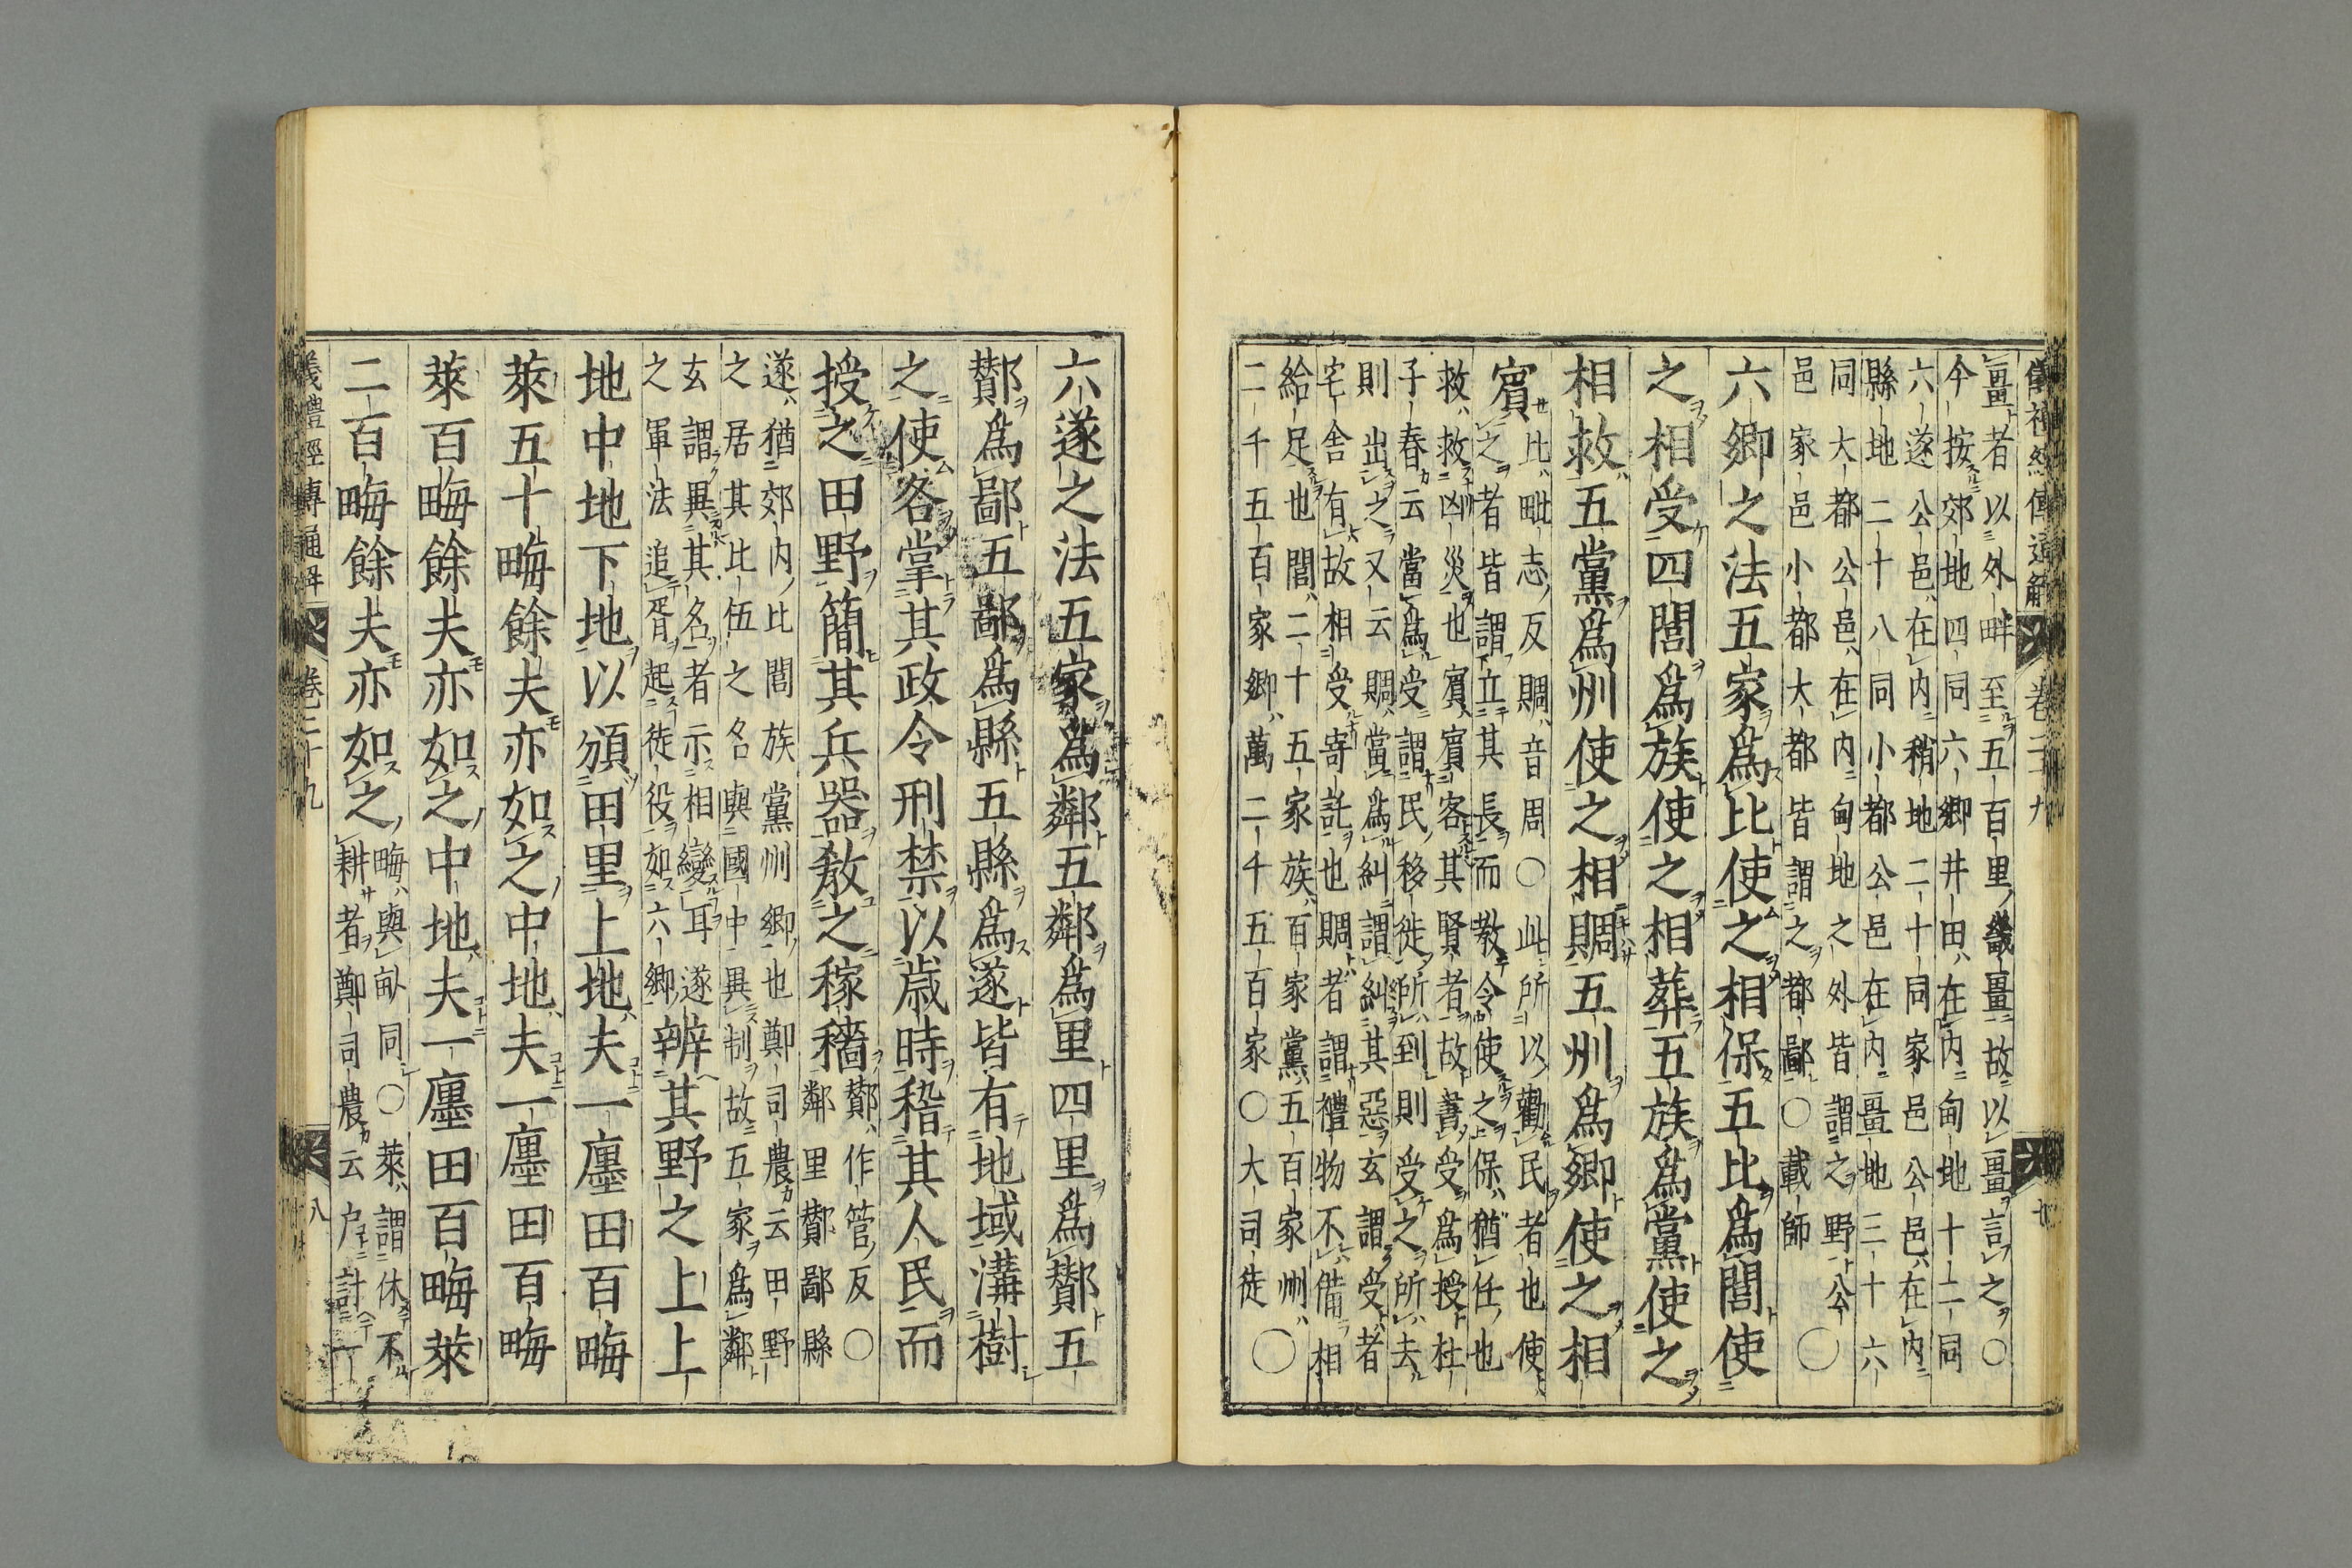 儀禮經傳通解 卷二十九
畺者以外畔至五百里畿畺故以畺言之〇
今按郊地四同六鄉井田在内甸地十二同
六遂公邑在内稍地二十同家邑公邑在内
縣地二十八同小都公邑在内畺地三十六
同大都公邑在内甸地之外皆謂之野公
邑家邑小都大都皆謂之都鄙〇載師〇
六鄉之法五家爲比使之相保五比爲閭使
之相受四閭爲族使之相葬五族爲黨使之
相救五黨爲州使之相賙五州爲鄉使之相
賓
比毗志反賙音周〇此所以勸民者也使
之者皆謂立其長而敎令使之保猶任也
救救凶災也賓賓客其賢者故書受爲授杜
子春云當爲受謂民移徙所到則受之所去
則出之又云賙當爲糾謂糾其惡玄謂受者
宅舍有故相受寄託也賙者謂禮物不備相
給足也閭二十五家族百家黨五百家州
二千五百家鄉萬二千五百家〇大司徒〇
六遂之法五家爲鄰五鄰爲里四里爲酇五
酇爲鄙五鄙爲縣五縣爲遂皆有地域溝樹
之使各掌其政令刑禁以歲時稽其人民而
授之田野簡其兵器敎之稼穡
酇作管反〇
鄰里酇鄙縣
遂猶郊内比閭族黨州鄉也鄭司農云田野
之居其比伍之名與國中異制故五家爲鄰
玄謂異其名者示相變耳遂
之軍法追胥起徒役如六鄉
辨其野之上上
地中地下地以頒田里上地夫一廛田百畮
萊五十畮餘夫亦如之中地夫一廛田百畮
萊百畮餘夫亦如之中地夫一廛田百畮萊
二百畮餘夫亦如之
畮與畝同〇萊謂休不
耕者鄭司農云戶計一
儀禮經傳通解 卷二十九